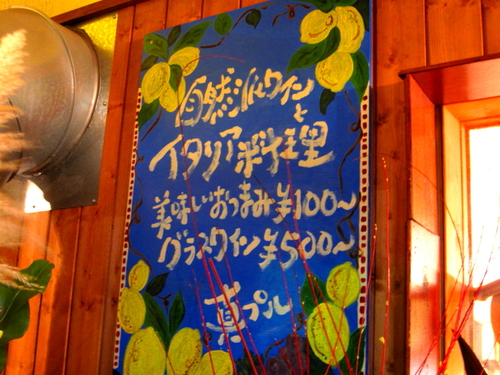 自然派ワイン
と
イタリア料理
美味しいおつまみ¥100〜
グラスワイン¥500〜
真プル